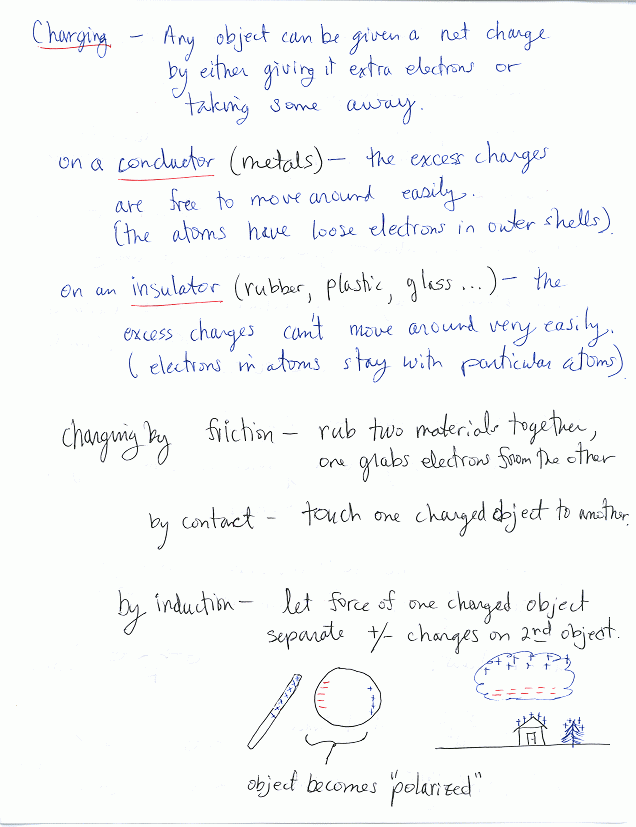 Charging - Any object can be given a net charge
by either giving it extra electrons or
taking some away.
on a conductor (metals) - the excess charges
are free to move around easily.
(the atoms have loose electrons in outer shells).
on an insulator (rubber, plastic, glass ...) - the
excess charges can't move around very easily.
(electrons in atoms stay with particular atoms)
charging by friction - rub two materials together,
one grabs electrons from the other
by contact - touch one charged object to another.
by induction - let force of one charged object
separate +/- charges on 2nd object.
object becomes "polarized"